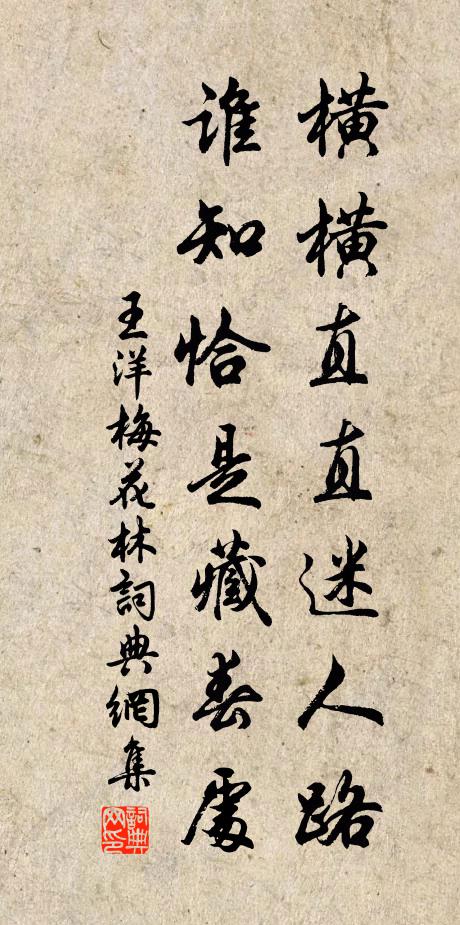 橫橫直直迷人路
誰知恰是藏春處
王洋梅花林詞典網集
詞典網印